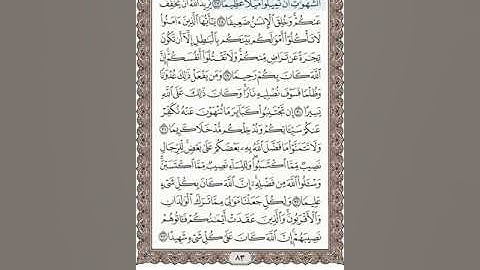 ٱلشَّهَوَٰتِ أَن تَمِيلُوا۟ مَيْلًا عَظِيمًا ۝٢٧ يُرِيدُ ٱللَّهُ أَن يُخَفِّفَ
عَنكُمْ ۚ وَخُلِقَ ٱلْإِنسَٰنُ ضَعِيفًا ۝٢٨ يَٰٓأَيُّهَا ٱلَّذِينَ ءَامَنُوا۟
لَا تَأْكُلُوٓا۟ أَمْوَٰلَكُم بَيْنَكُم بِٱلْبَٰطِلِ إِلَّآ أَن تَكُونَ
تِجَٰرَةً عَن تَرَاضٍ مِّنكُمْ ۚ وَلَا تَقْتُلُوٓا۟ أَنفُسَكُمْ ۚ إِنَّ
ٱللَّهَ كَانَ بِكُمْ رَحِيمًا ۝٢٩ وَمَن يَفْعَلْ ذَٰلِكَ عُدْوَٰنًا
وَظُلْمًا فَسَوْفَ نُصْلِيهِ نَارًا ۚ وَكَانَ ذَٰلِكَ عَلَى ٱللَّهِ
يَسِيرًا ۝٣٠ إِن تَجْتَنِبُوا۟ كَبَآئِرَ مَا تُنْهَوْنَ عَنْهُ نُكَفِّرْ
عَنكُمْ سَيِّـَٔاتِكُمْ وَنُدْخِلْكُم مُّدْخَلًا كَرِيمًا ۝٣١
وَلَا تَتَمَنَّوْا۟ مَا فَضَّلَ ٱللَّهُ بِهِۦ بَعْضَكُمْ عَلَىٰ بَعْضٍ ۚ لِّلرِّجَالِ
نَصِيبٌ مِّمَّا ٱكْتَسَبُوا۟ ۖ وَلِلنِّسَآءِ نَصِيبٌ مِّمَّا ٱكْتَسَبْنَ ۚ
وَسْـَٔلُوا۟ ٱللَّهَ مِن فَضْلِهِۦٓ ۗ إِنَّ ٱللَّهَ كَانَ بِكُلِّ شَىْءٍ
عَلِيمًا ۝٣٢ وَلِكُلٍّ جَعَلْنَا مَوَٰلِىَ مِمَّا تَرَكَ ٱلْوَٰلِدَانِ
وَٱلْأَقْرَبُونَ ۚ وَٱلَّذِينَ عَقَدَتْ أَيْمَٰنُكُمْ فَـَٔاتُوهُمْ
نَصِيبَهُمْ ۚ إِنَّ ٱللَّهَ كَانَ عَلَىٰ كُلِّ شَىْءٍ شَهِيدًا ۝٣٣
٨٣